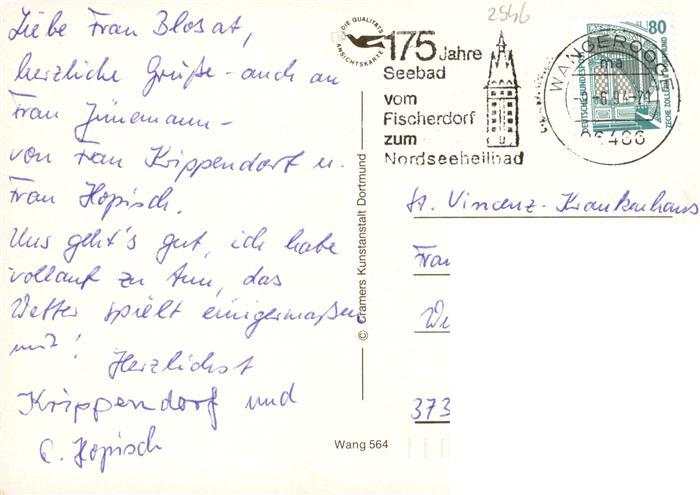 Liebe Frau Blosat,
herzliche Grüße - auch an
Frau Jünemann -
von Frau Krippendorf u.
Frau Hopisch.
Uns geht's gut, ich habe
vollauf zu tun, das
Wetter spielt einigermaßen
mit!
Herzlichst
Krippendorf und
C. Hopisch
DIE QUALITÄTS
ANSICHTSKARTE
© Cramers Kunstanstalt Dortmund
Wang 564
2546
175 Jahre
Seebad
vom
Fischerdorf
zum
Nordseeheilbad
WANGEROOGE
ma
-6.94-
26486
80
DEUTSCHE BUNDESPOST
ZECHE ZOLLERN II
St. Vincenz-Krankenhaus
Frau
We
373